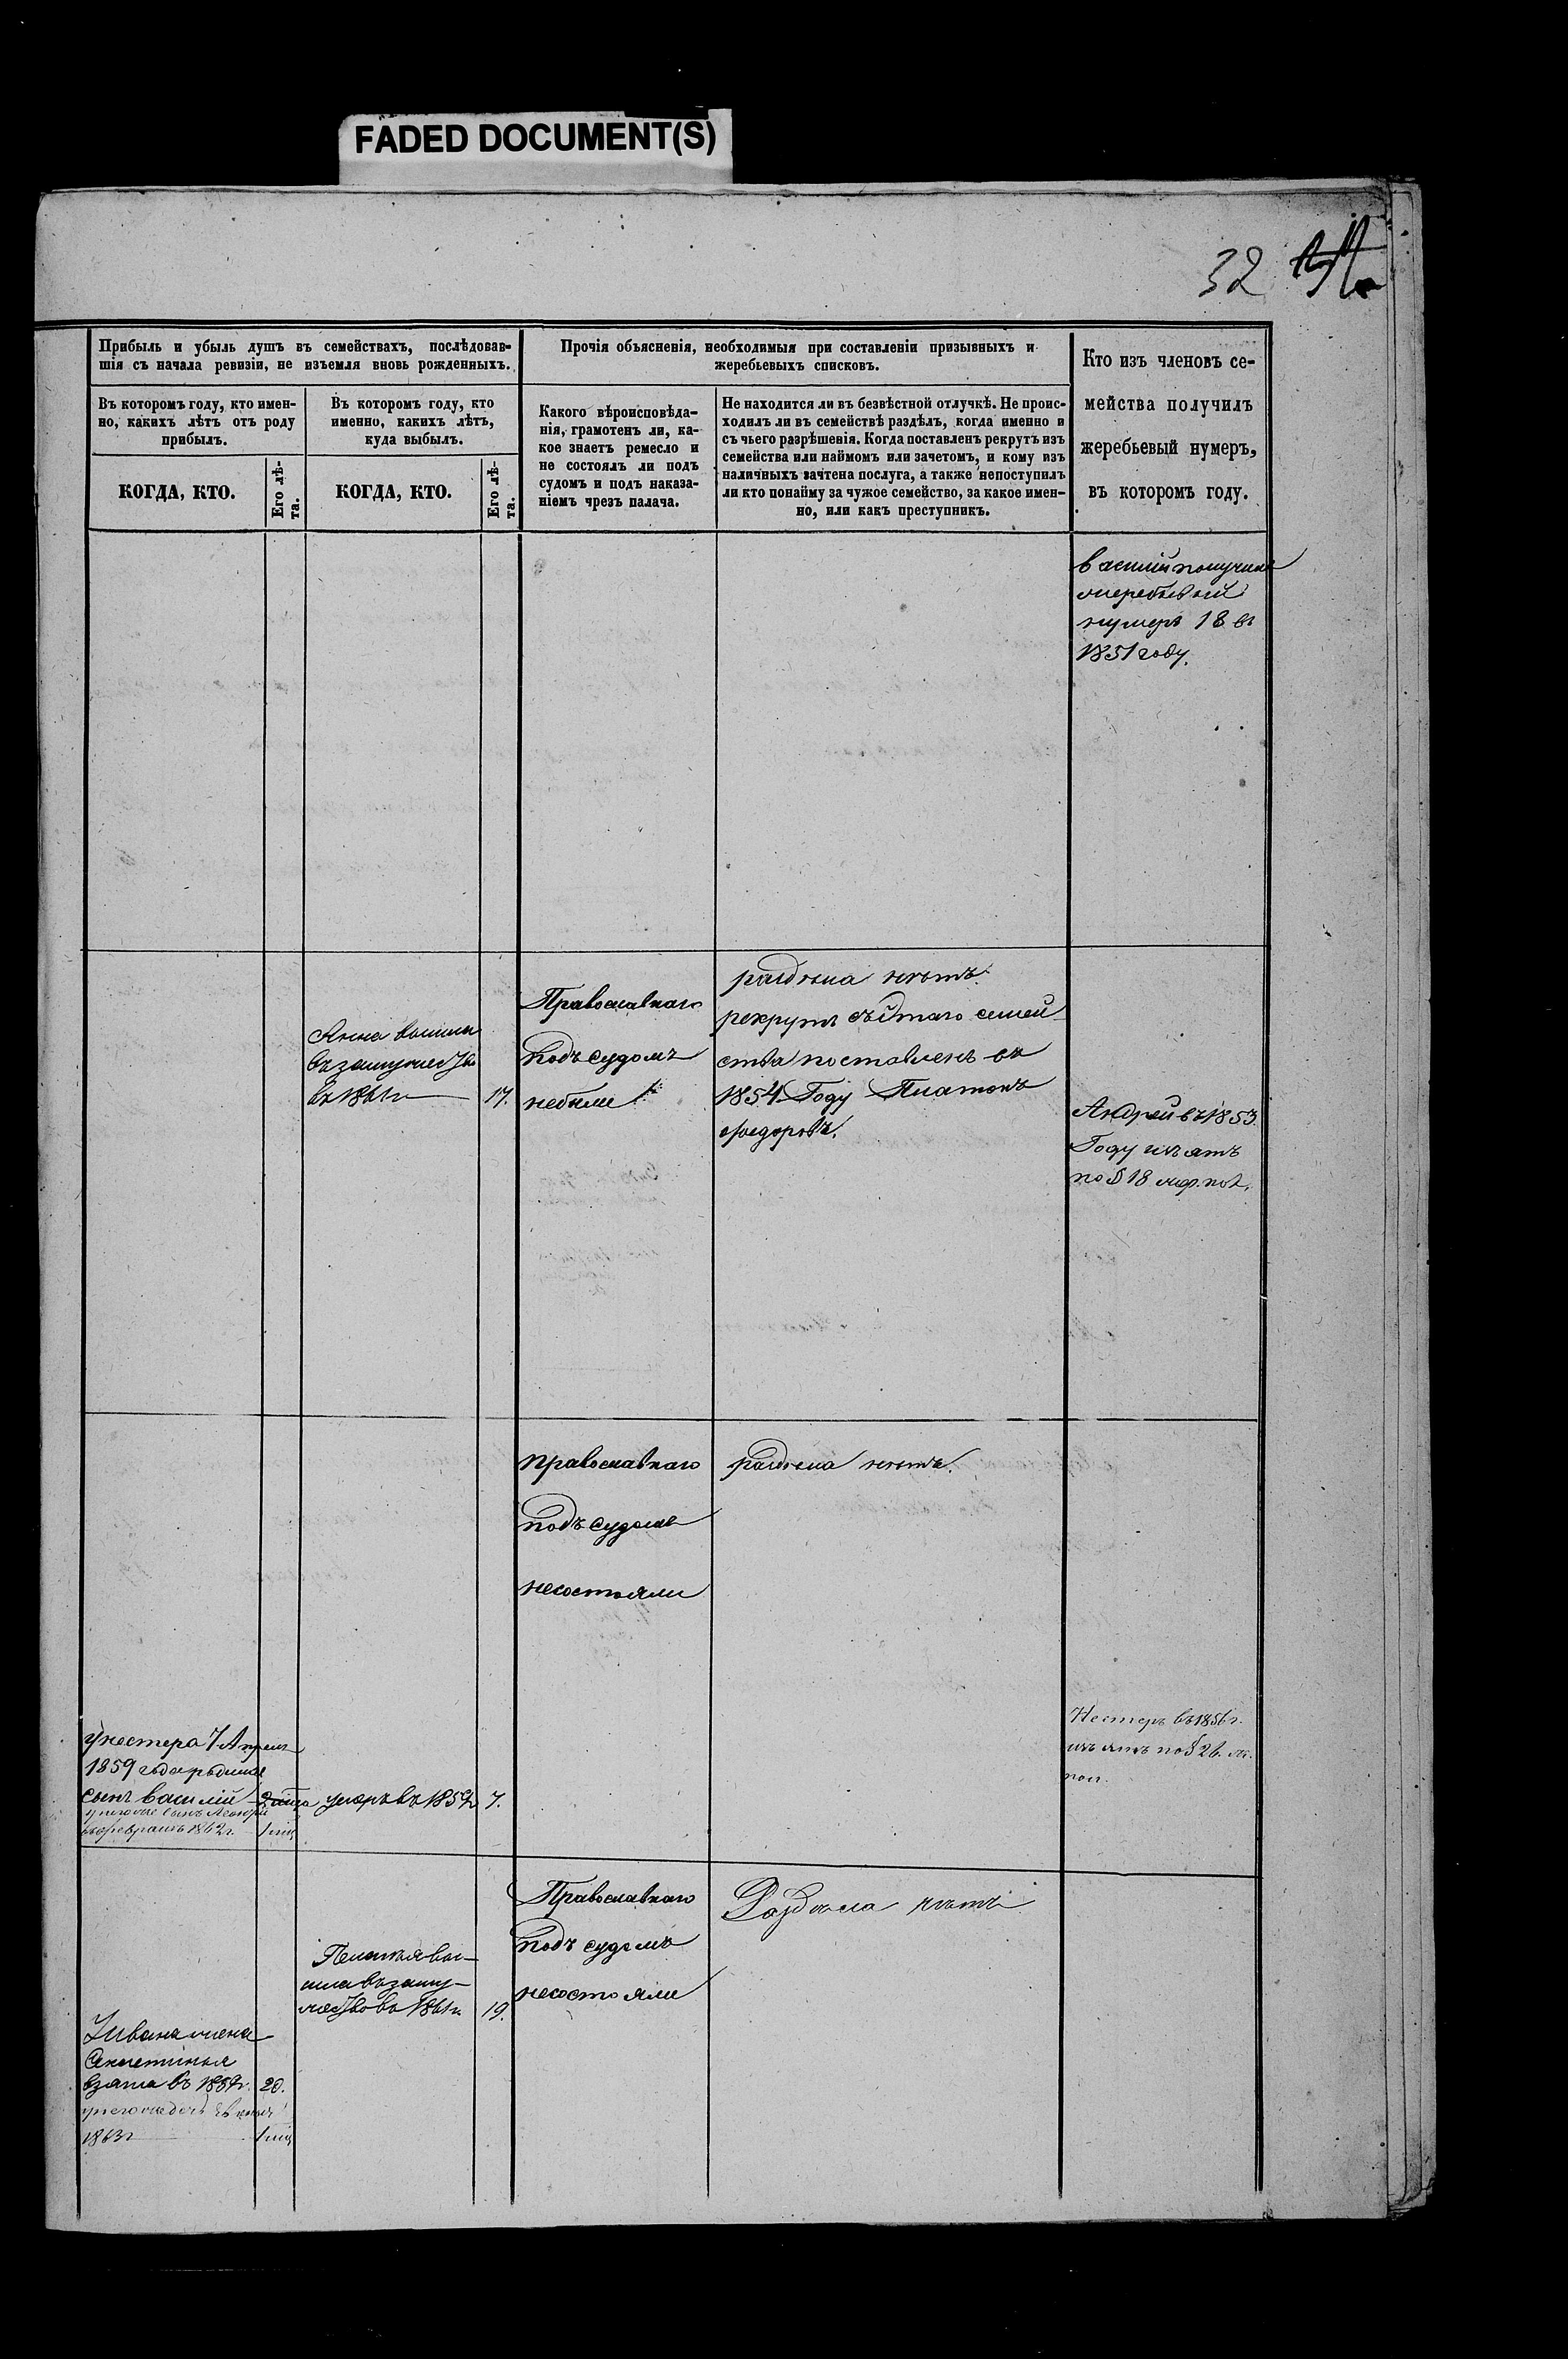 FADED DOCUMENT(S)
32
Прибыль и убыль душъ въ семействахъ, послѣдовав-
шія съ начала ревизіи, не изъемля вновь рожденныхъ.
Прочія объясненія, необходимыя при составленіи призывныхъ и
жеребьевыхъ списковъ.
Кто изъ членовъ се-
мейства получилъ
жеребьевый нумеръ,
въ которомъ году.
Въ которомъ году, кто имен-
но, какихъ лѣтъ отъ роду
прибылъ.
Въ которомъ году, кто
именно, какихъ лѣтъ,
куда выбылъ.
Какого вѣроисповѣда-
нія, грамотенъ ли, ка-
кое знаетъ ремесло и
не состоялъ ли подъ
судомъ и подъ наказа-
ніемъ чрезъ палача.
Не находится ли въ безвѣстной отлучкѣ. Не проис-
ходилъ ли въ семействѣ раздѣлъ, когда именно и
съ чьего разрѣшенія. Когда поставленъ рекрутъ изъ
семейства или наймомъ или зачетомъ, и кому изъ
наличныхъ зачтена послуга, а также непоступилъ
ли кто понайму за чужое семейство, за какое имен-
но, или какъ преступникъ.
КОГДА, КТО.
Его лѣ-
та.
КОГДА, КТО.
Его лѣ-
та.
василій получилъ
жеребьевый
нумеръ 18 въ
1851 году.
Анна вышла
въ замужество
въ 1861г 17.
Православнаго
подъ судомъ
небыли
раздѣла нѣтъ.
рекрутъ съ этаго семей
ства поставленъ въ
1854 Году Платонъ
Ѳедоровъ.
Андрей въ 1853
Году изъятъ
по § 18 жер. пол.
православнаго
подъ судомъ
несостояли
раздѣла нѣтъ.
у нестера 7 Апреля
1859 года родился
сынъ василій
у него же сынъ
въ февралѣ 1862г. 1 мѣц
умеръ въ 1859г 7.
Нестеръ въ 1856г.
изъятъ по § 26. ж.
пол.
Православнаго
подъ судомъ
несостояли
Раздѣла нѣтъ
Пелагея вы-
шла въ заму-
жество въ 1861г. 19.
У ивана жена
взята въ 1859г. 20.
у него же дочь
1863г 1 мѣц